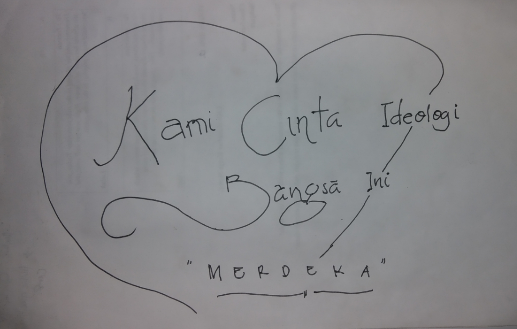 Kami Cinta Ideologi
Bangsa Ini
"MERDEKA"